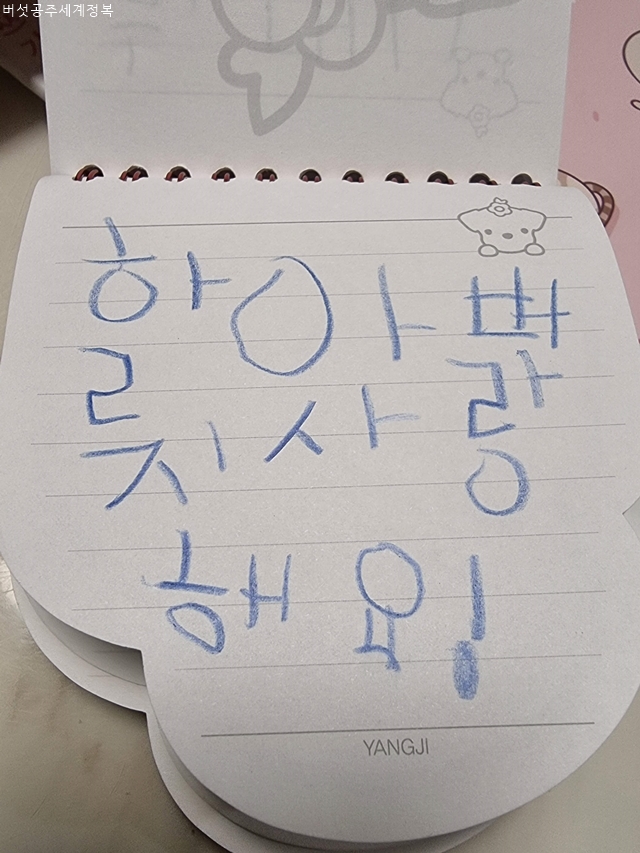 버섯공주세계정복
할아버
지사랑
해요!
YANGJI